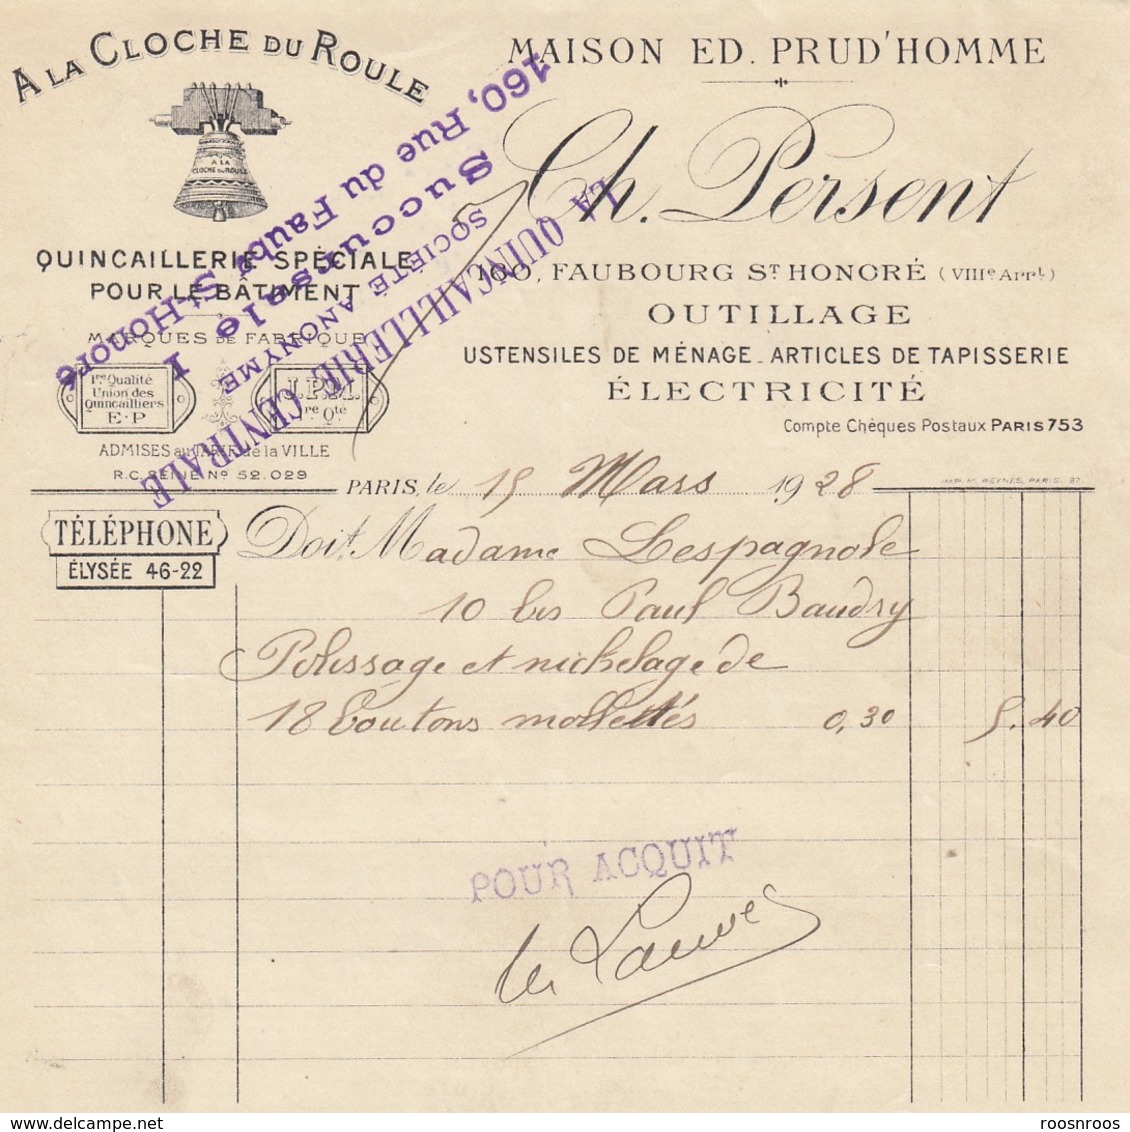 A LA CLOCHE DU ROULE
MAISON ED. PRUD'HOMME
Ch. Persent
A LA
CLOCHE DU ROULE
QUINCAILLERIE SPÉCIALE
POUR LE BÂTIMENT
160, FAUBOURG ST HONORÉ (VIIIe Arrt)
OUTILLAGE
USTENSILES DE MÉNAGE - ARTICLES DE TAPISSERIE
ÉLECTRICITÉ
Compte Chèques Postaux PARIS 753
MARQUES DE FABRIQUE
1re Qualité
Union des
Quincailliers
E.P
J.P.M.
1re Qté
ADMISES au TARIF de la VILLE
R.C. SEINE No 52.029
LA QUINCAILLERIE CENTRALE
SOCIÉTÉ ANONYME
Succursale I
160, Rue du Faubg St-Honoré
PARIS, le 15 Mars 1928
IMP. M. REYNES, PARIS. 27
TÉLÉPHONE
ÉLYSÉE 46-22
Doit Madame Lespagnole
10 bis Paul Baudry
Polissage et nichelage de
18 boutons molletés 0,30 5.40
POUR ACQUIT
roosnroos
www.delcampe.net